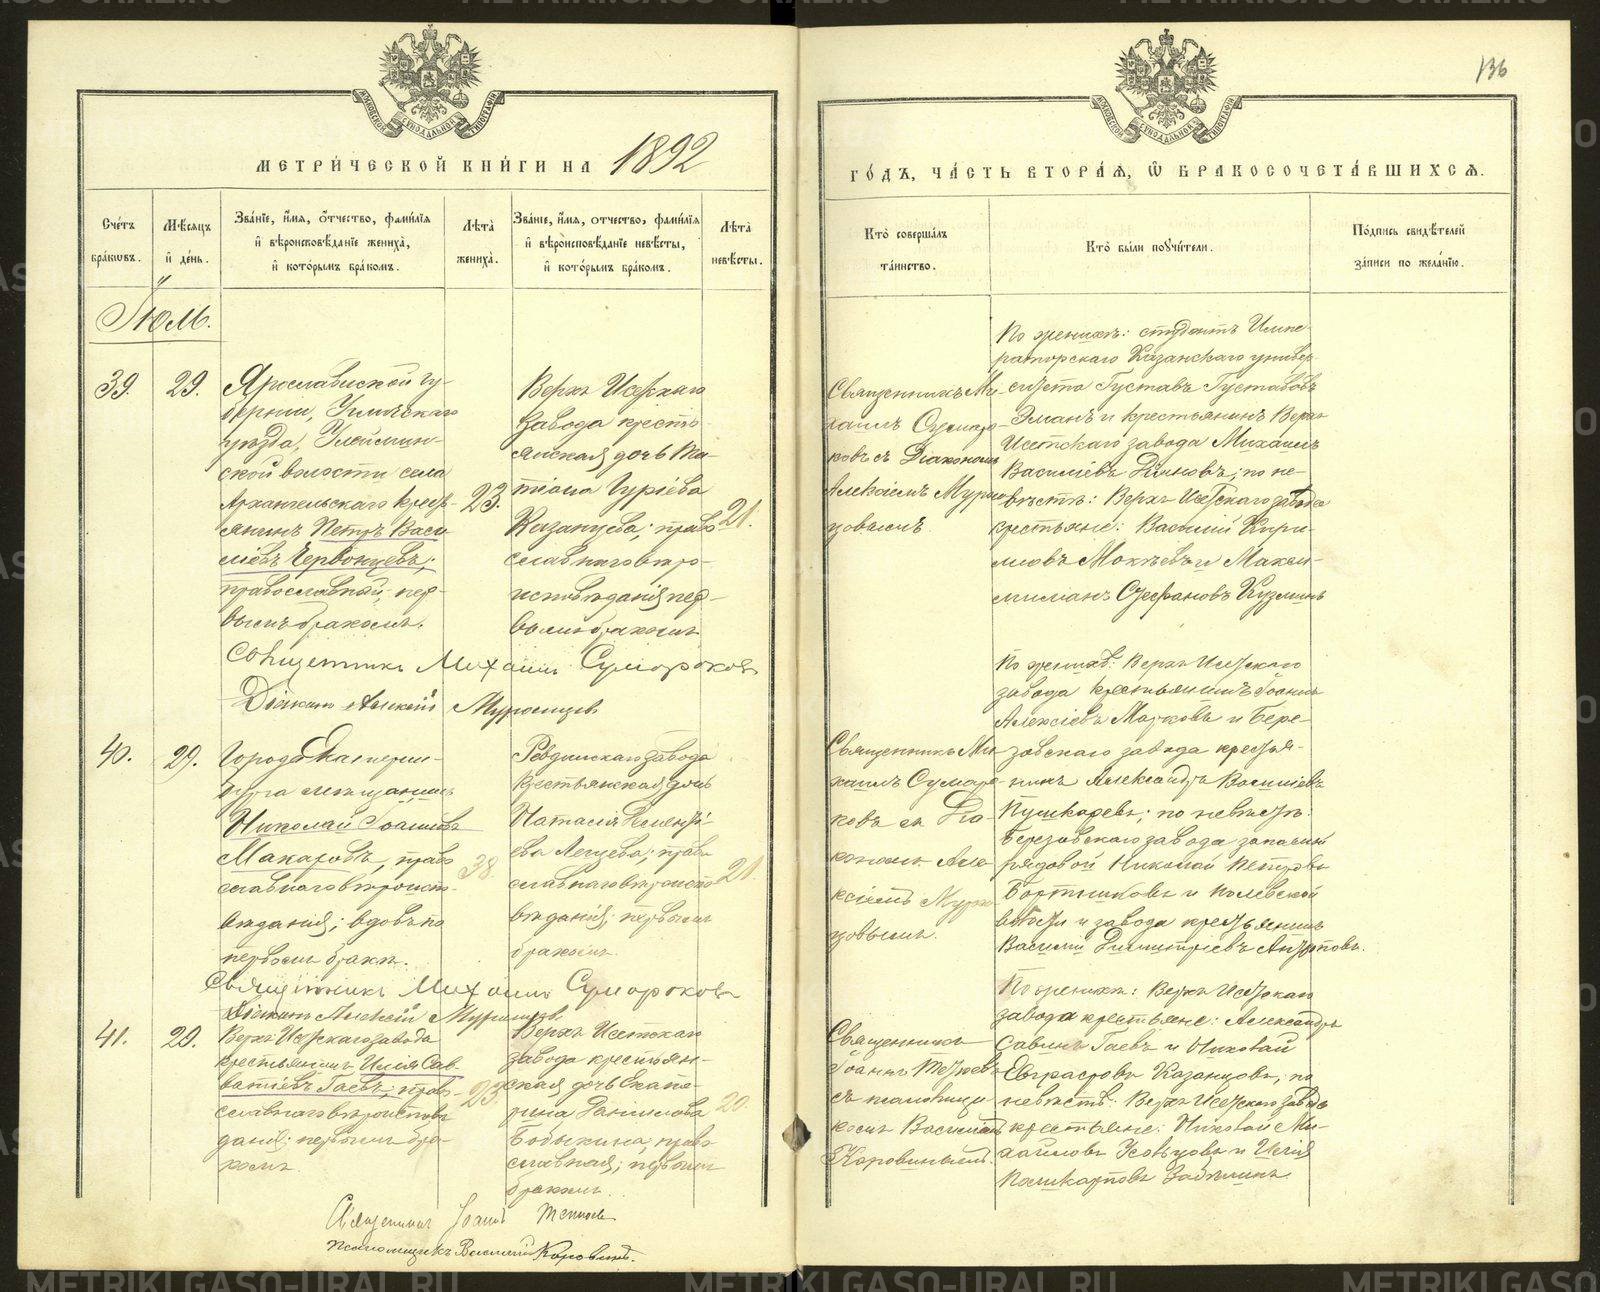 136
МЕТРИ́ЧЕСКОЙ КНИ́ГИ НА 1892
ГО́ДЪ, ЧА́СТЬ ВТОРА́Ѧ, Ѽ БРАКОСОЧЕТА́ВШИХСѦ.
Сче́тъ бра́кωвъ.
Мѣ́сяцъ и҆ де́нь.
Зва́нїе, и҆́мя, ѻ҆́тчество, фами́лїя и҆ вѣроисповѣ́данїе жениха̀, и҆ кото́рымъ бра́комъ.
Лѣ́та жениха̀.
Зва́нїе, и҆́мя, отчество, фами́лїя и҆ вѣроисповѣ́данїе невѣ́сты, и҆ кото́рымъ бра́комъ.
Лѣ́та невѣ́сты.
Кто̀ соверша́лъ та́инство.
Кто̀ бы́ли поꙋчи́тели.
По́дпись свидѣ́телей за́писи по жела́нїю.
Іюль.
39.
29.
Ярославской гу-
берніи, Угличскаго
уѣзда, Улеймин-
ской волости села
Архангельскаго крест-
янинъ Петръ Васи-
ліевъ Червонцевъ;
православный, пер-
вымъ бракомъ.
23.
Верхъ Исетскаго
завода кресть-
янская дочь Та-
тіана Гуріева
Казанцева; право
славнаго вѣро-
исповѣданія, пер-
вымъ бракомъ
21.
Священникъ Ми-
хаилъ Суморо-
ковъ съ Діакономъ
Алексіемъ Мурзи
цовымъ.
По женихѣ: студентъ Импе-
раторскаго Казанскаго универ-
ситета Густавъ Густавовъ
Эманъ и крестьянинъ Верхъ
Исетскаго завода Михаилъ
Василіевъ Диновъ; по не-
вѣстѣ: Верхъ Исетскаго завода
крестьяне: Василій Кири-
ловъ Мокѣевъ и Макси-
милианъ Стефановъ Кузминъ
Священникъ Михаилъ Сумороковъ
Діаконъ Алексій
40.
29.
Города Екатерин-
бурга мѣщанинъ
Николай Іоанновъ
Макаровъ, право
славнаго вѣроиспо-
вѣданія; вдовъ по
первомъ бракѣ.
38.
Ревдинскаго завода
крестьянская дочь
Наталія
право
славнаго вѣроиспо
вѣданія; первымъ
бракомъ.
21.
Священникъ Ми-
хаилъ Суморо-
ковъ съ Діа-
кономъ Але-
ксіемъ Мурзи
цовымъ.
По женихѣ: Верхъ Исетскаго
завода крестьянинъ Іоаннъ
Алексіевъ Марковъ и Бере-
зовскаго завода крестья-
нинъ Александръ Василіевъ
Пушкаревъ; по невѣстѣ:
Березовскаго завода запасный
рядовой Николай Петровъ
Бортниковъ и Полевской
волости и завода крестьянинъ
Василій Димитріевъ Антроповъ.
Священникъ Михаилъ Сумороковъ
Діаконъ Алексій
41.
29.
Верхъ Исетскаго завода
крестьянинъ Илія Сав-
ватіевъ Гаевъ; право-
славнаго вѣроисповѣ
данія; первымъ бра-
комъ.
23.
Верхъ Исетскаго
завода крестьян-
ская дочь Екате-
рина Даніилова
Бобыкина, право
славная; первымъ
бракомъ.
20.
Священникъ
Іоаннъ
съ псаломщи
комъ Василіемъ
Коровинымъ.
По женихѣ: Верхъ Исетскаго
завода крестьяне: Александръ
Савинъ Гаевъ и Николай
Евграфовъ Казанцовъ; по
невѣстѣ: Верхъ Исетскаго завода
крестьяне: Николай Ми-
хайловъ и Илія
Поликарповъ
Священникъ Іоаннъ
Псаломщикъ Василій Коровинъ.
METRIKI.GASO-URAL.RU